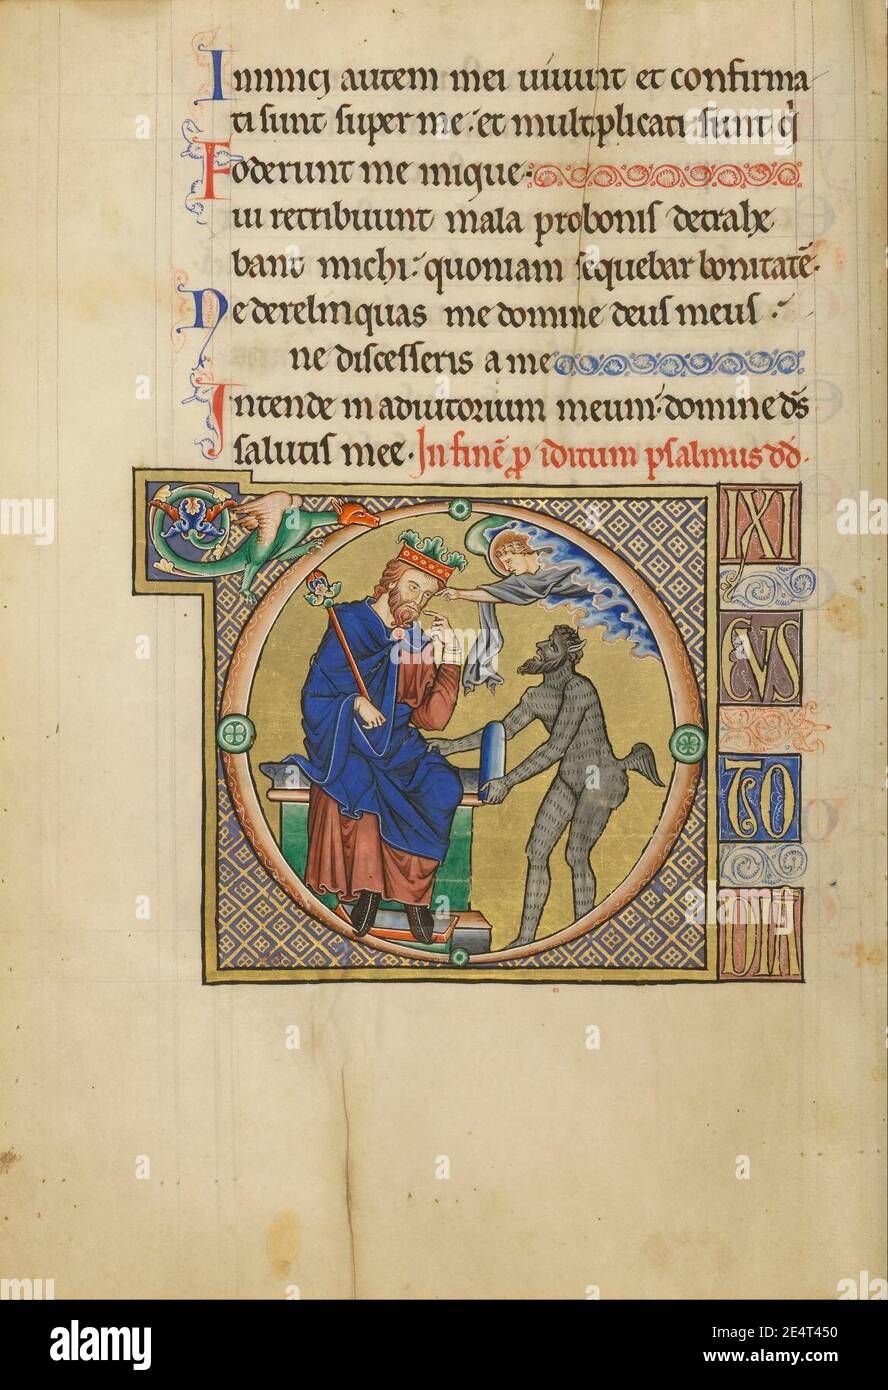 Inimici autem mei uiuunt et confirma
ti sunt super me: et multiplicati sunt q̇
Foderunt me inique.
ui retribuunt mala pro bonis detrahe
bant michi: quoniam sequebar bonitatē.
Ne derelinquas me domine deus meus
ne discesseris a me
Intende in adiutorium meum: domine ds̄
salutis mee. In finē ꝓ iditum psalmus dd̄.
DIXI
CUS
TO
DIĀ
alamy
Image ID: 2E4T450
www.alamy.com